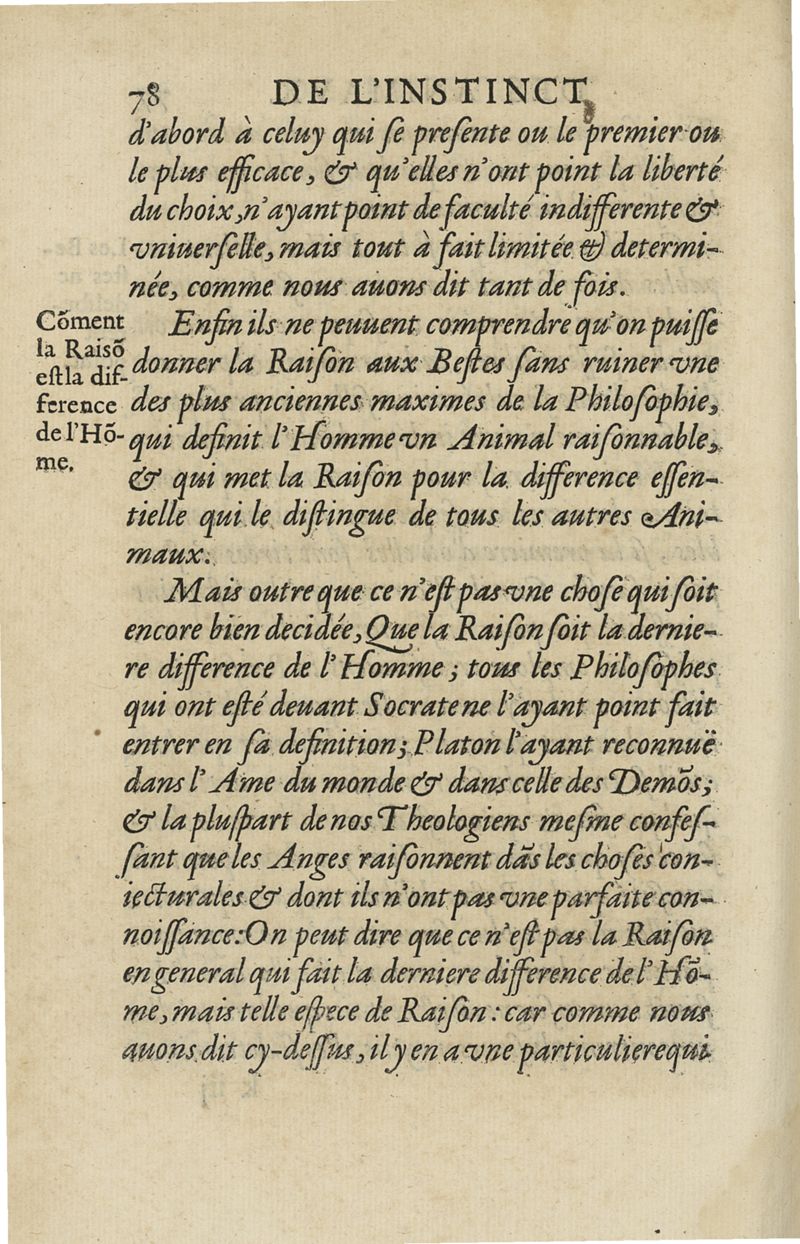 78 DE L'INSTINCT
d'abord à celuy qui ſe preſente ou le premier ou
le plus efficace, & qu'elles n'ont point la liberté
du choix, n'ayant point de faculté indifferente &
vniuerſelle, mais tout à fait limitée & determi-
née, comme nous auons dit tant de fois.
Cõment
la Raisõ
eſt la dif-
ference
de l'Hõ-
me.
Enfin ils ne peuuent comprendre qu'on puiſſe
donner la Raiſon aux Beſtes ſans ruiner vne
des plus anciennes maximes de la Philoſophie,
qui definit l'Homme vn Animal raiſonnable,
& qui met la Raiſon pour la difference eſſen-
tielle qui le diſtingue de tous les autres Ani-
maux.
Mais outre que ce n'eſt pas vne choſe qui ſoit
encore bien decidée, Que la Raiſon ſoit la dernie-
re difference de l'Homme; tous les Philoſophes
qui ont eſté deuant Socrate ne l'ayant point fait
entrer en ſa definition; Platon l'ayant reconnuë
dans l'Ame du monde & dans celle des Demõs;
& la pluſpart de nos Theologiens meſme confeſ-
ſant que les Anges raiſonnent dãs les choſes con-
iecturales & dont ils n'ont pas vne parfaite con-
noiſſance: On peut dire que ce n'eſt pas la Raiſon
en general qui fait la derniere difference de l'Hõ-
me, mais telle eſpece de Raiſon: car comme nous
auons dit cy-deſſus, il y en a vne particuliere qui